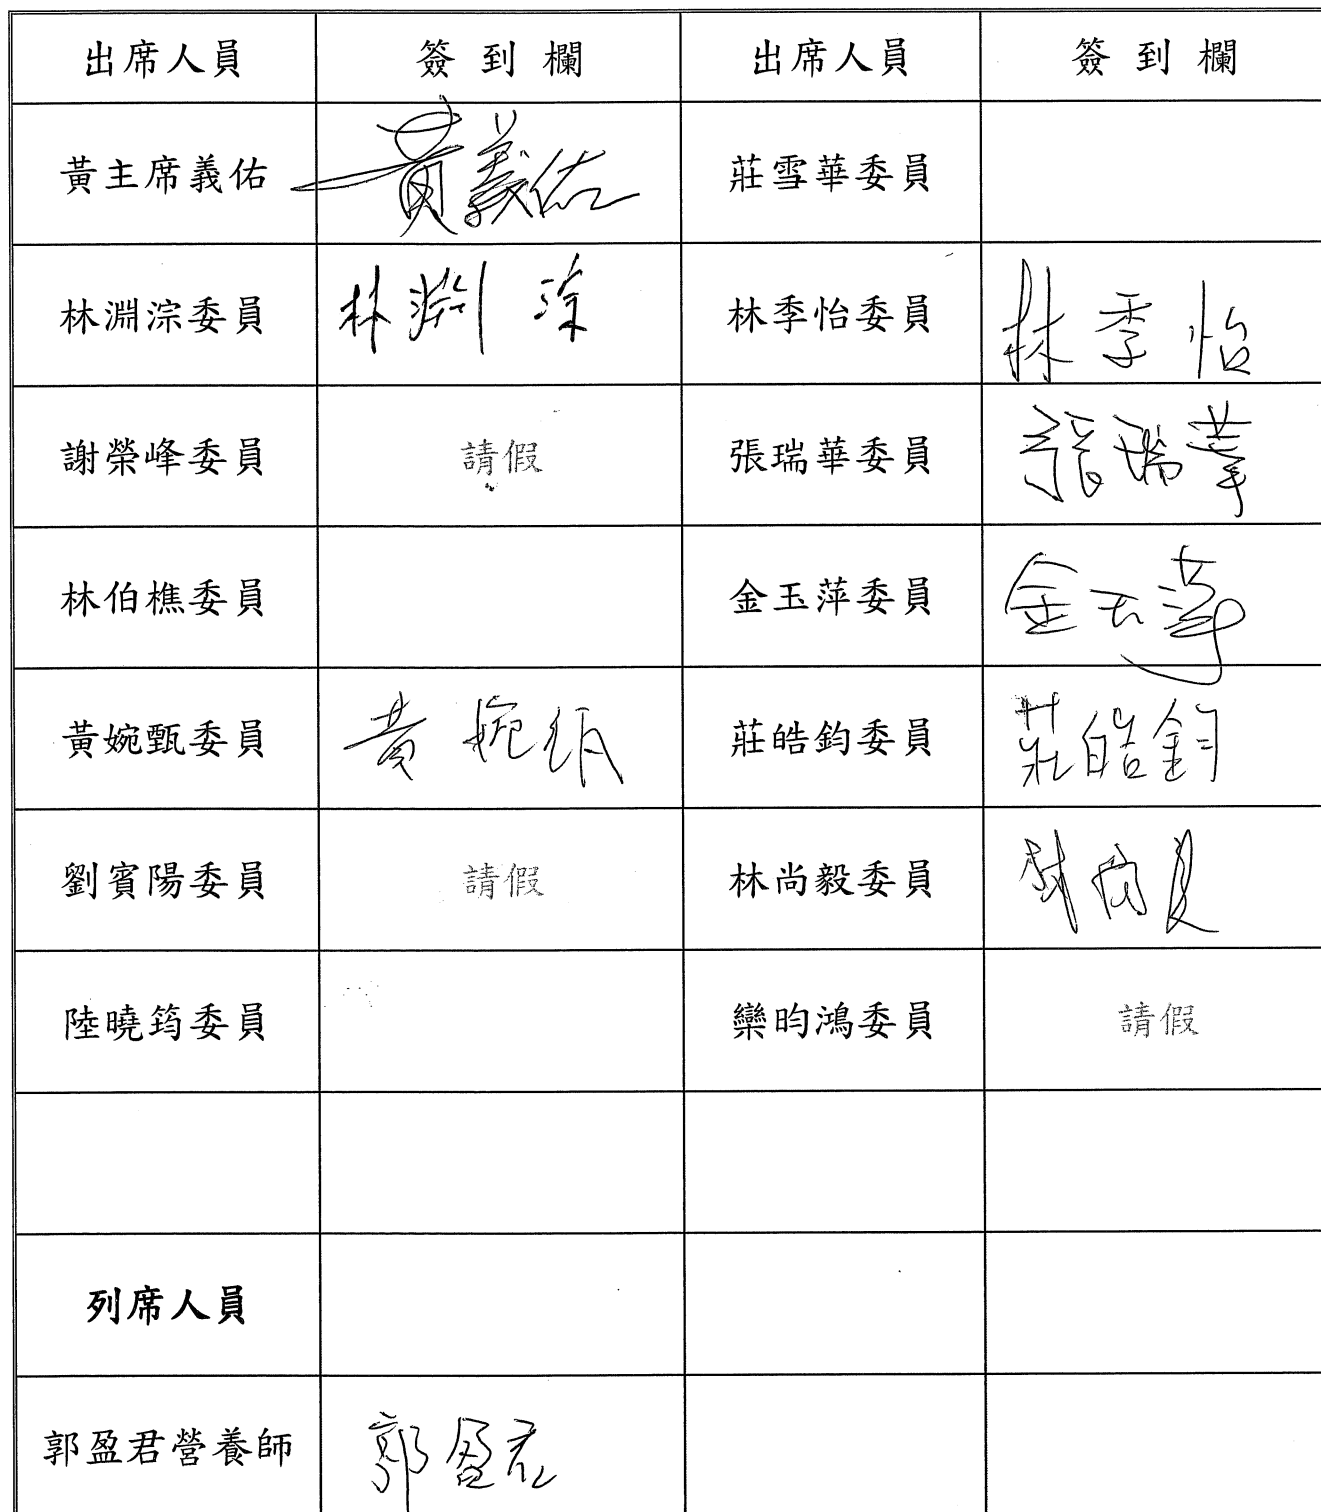 出席人員 簽到欄 出席人員 簽到欄
黃主席義佑 黃義佑 莊雪華委員
林淵淙委員 林淵淙 林季怡委員 林季怡
謝榮峰委員 請假 張瑞華委員 張瑞華
林伯樵委員 金玉萍委員 金玉萍
黃婉甄委員 黃婉甄 莊皓鈞委員 莊皓鈞
劉賓陽委員 請假 林尚毅委員 林尚毅
陸曉筠委員 欒昀鴻委員 請假
列席人員
郭盈君營養師 郭盈君